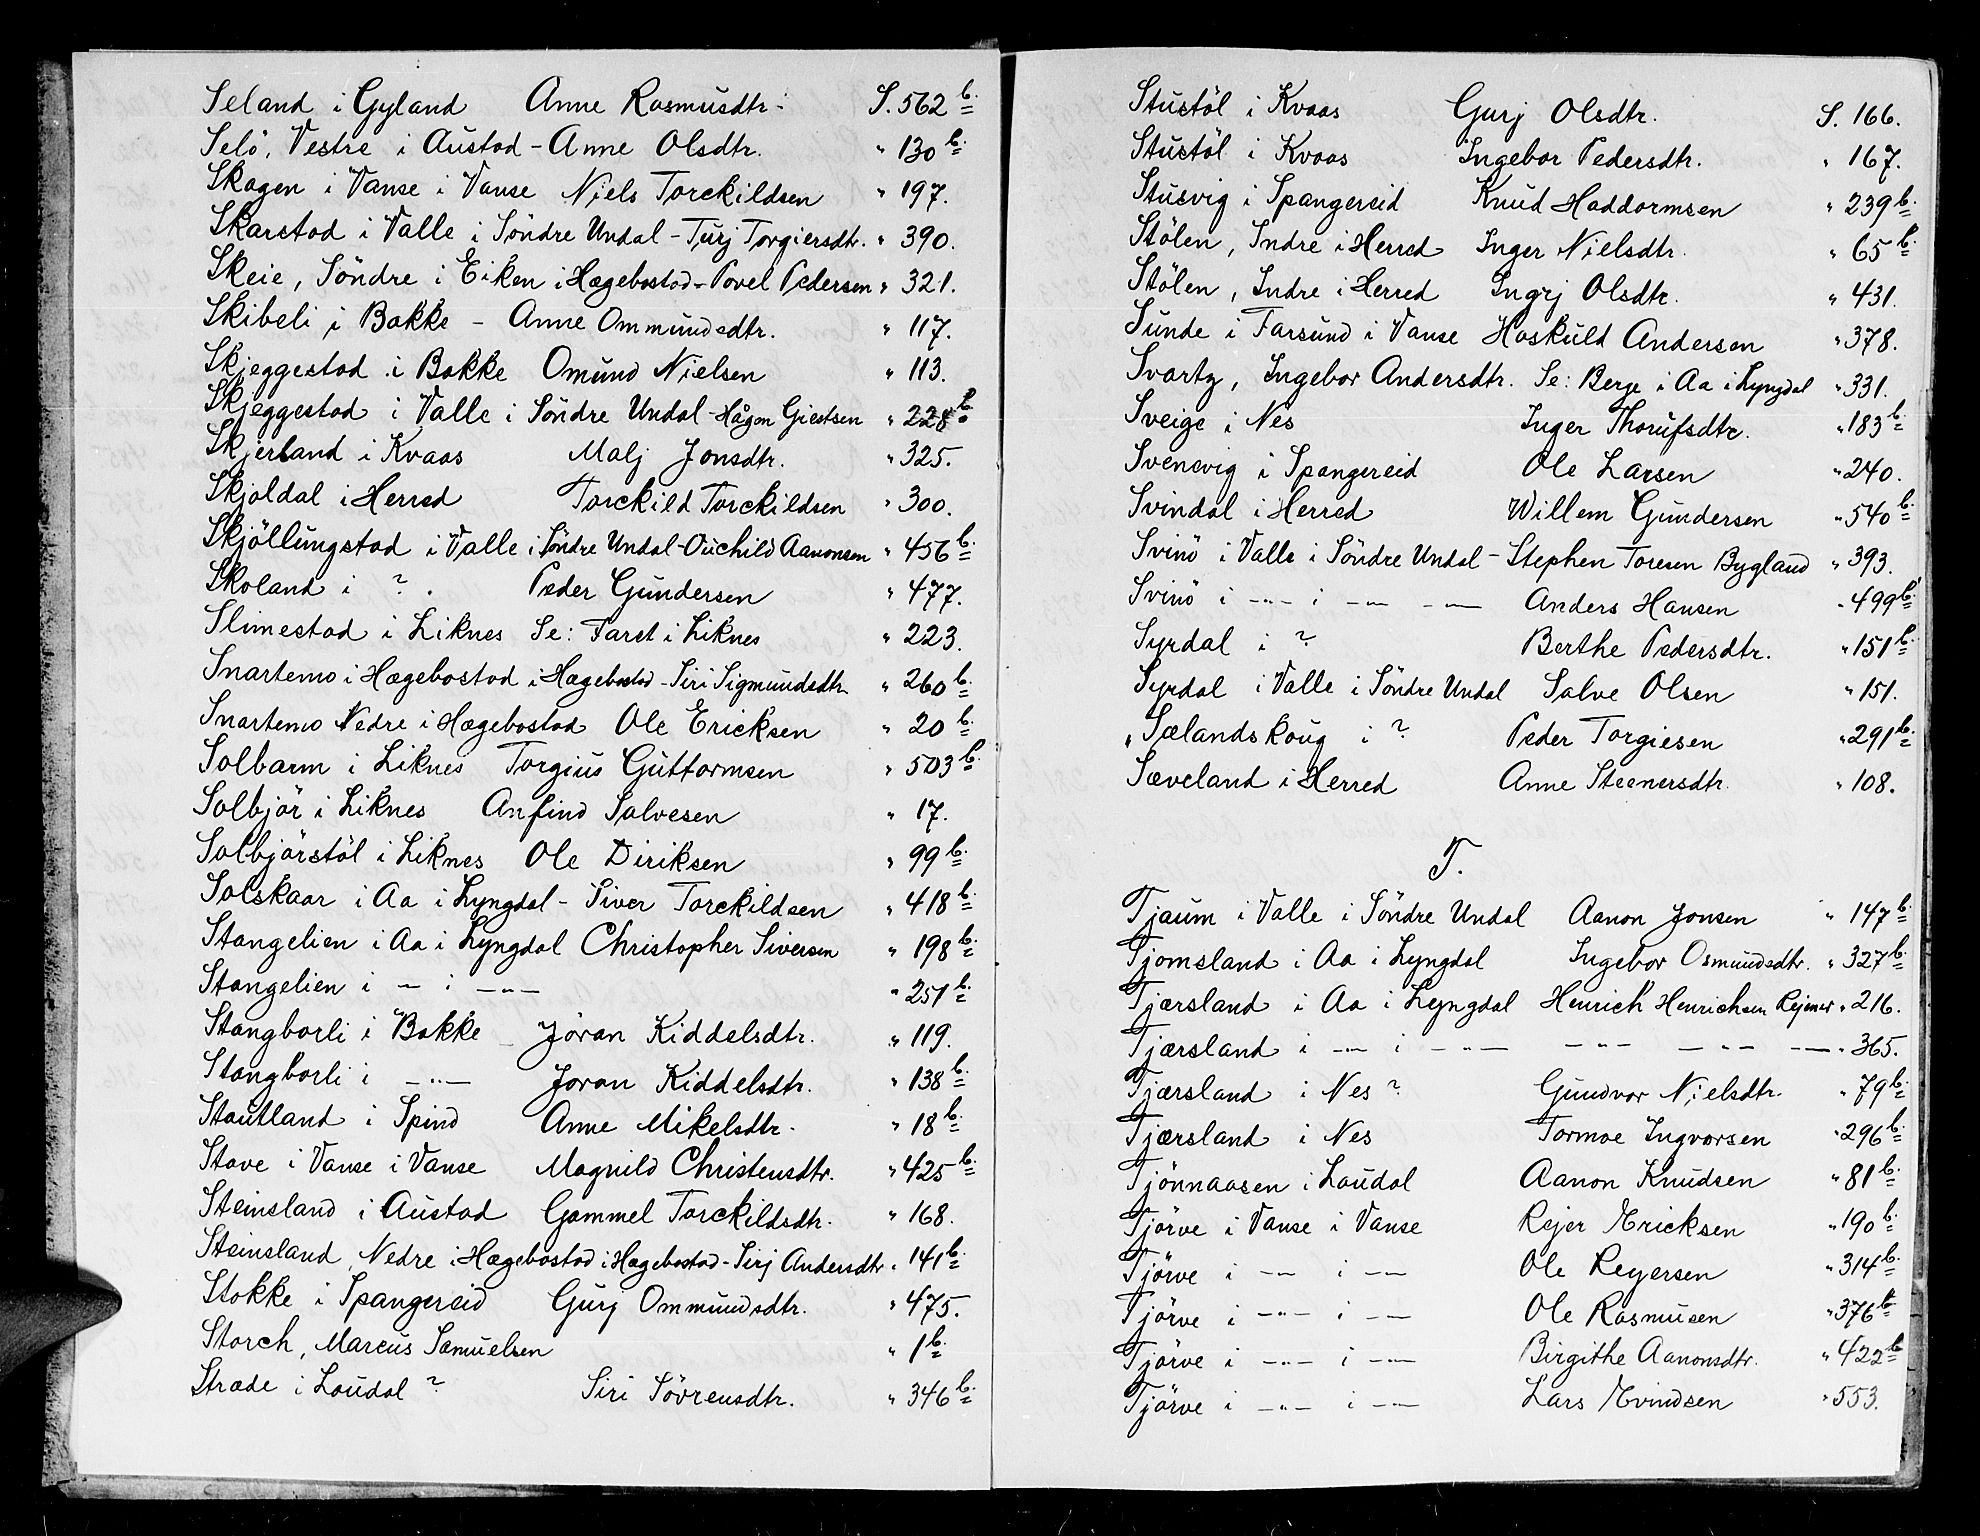 Seland i Gyland Anne Rasmusdtr. S. 562 b.
Selö, Vestre i Austad - Anne Olsdtr. " 130 b.
Skagen i Vanse i Vanse Niels Torckildsen " 197.
Skarstad i Valle i Söndre Undal - Turj Torgiersdtr. " 390.
Skeie, Söndre i Eiken i Hægebostad - Povel Pedersen " 321.
Skibeli i Bakke - Anne Ommundsdtr. " 117.
Skjeggestad i Bakke Omund Nielsen " 113.
Skjeggestad i Valle i Söndre Undal - Hågen Giestsen " 228 b.
Skjerland i Kvaas Malj Jonsdtr. " 325.
Skjoldal i Herred Torckild Torckildsen " 300.
Skjöllingstad i Valle i Söndre Undal - Ouchild Aanonsen " 456 b.
Skoland i ? . Peder Gundersen " 477.
Slimestad i Liknes Se: Faret i Liknes " 223.
Snartemo i Hægebostad i Hægebostad - Siri Sigmundsdtr. " 260 b.
Snartemo Nedre i Hægebostad Ole Ericksen " 20 b.
Solbarm i Liknes Torgius Guttormsen " 503 b.
Solbjör i Liknes Anfind Salvesen " 17.
Solbjörstöl i Liknes Ole Diriksen " 99 b.
Solskaar i Aa i Lyngdal - Siver Torckildsen " 418 b.
Stangelien i Aa i Lyngdal Christopher Siversen " 198 b.
Stangelien i — i — " — " 251 b.
Stangborli i Bakke Jöran Kiddelsdtr. " 119.
Stangborli i — " — Joran Kiddelsdtr. " 138 b.
Stautland i Spind Anne Mikelsdtr. " 18 b.
Stave i Vanse i Vanse Magnild Christensdtr. " 425 b.
Steinsland i Austad Gammel Torckildsdtr. " 168.
Steinsland, Nedre i Hægebostad i Hægebostad - Sirj Andersdtr. " 141 b.
Stokke i Spangereid Gurj Ommundsdtr. " 475.
Storch, Marcus Samuelsen " 1 b.
Strade i Laudal ? Siri Sövrensdtr. " 346 b.
Stustöl i Kvaas Gurj Olsdtr. S. 166.
Stustöl i Kvaas Ingebor Pedersdtr. " 167.
Stusvig i Spangereid Knud Haddormsen " 239 b.
Stölen, Indre i Herred Inger Nielsdtr. " 65 b.
Stölen, Indre i Herred Ingrj Olsdtr. " 431.
Sunde i Farsund i Vanse Haskuld Andersen " 378.
Svartz, Ingebor Andersdtr. Se: Berge i Aa i Lyngdal " 331.
Sveige i Nes Inger Thorufsdtr. " 183 b.
Svenevig i Spangereid Ole Larsen " 240.
Svindal i Herred Willem Gundersen " 540 b.
Svinö i Valle i Söndre Undal - Stephen Toresen Bygland " 393.
Svinö i — " — i — " — — " — Anders Hansen " 499 b.
Syrdal i ? Berthe Pedersdtr. " 151 b.
Syrdal i Valle i Söndre Undal Salve Olsen " 151.
"Sælandskoug i ? Peder Torgiesen " 291 b.
Sæveland i Herred Anne Steenersdtr. " 108.
T.
Tjaum i Valle i Söndre Undal Aanon Jonsen " 147 b.
Tjomsland i Aa i Lyngdal Ingebor Osmundsdtr. " 327 b.
Tjærsland i Aa i Lyngdal Henrich Henrichsen Rejmer " 216.
Tjærsland i — " — i — " — — " — — " — — " 365.
Tjærsland i Nes ? Gundvor Nielsdtr. " 79 b.
Tjærsland i Nes Tormoe Ingvorsen " 296 b.
Tjönnaasen i Laudal Aanon Knudsen " 81 b.
Tjörve i Vanse i Vanse Rejer Ericksen " 190 b.
Tjörve i — " — i — " — Ole Reyersen " 314 b.
Tjörve i — " — i — " — Ole Rasmusen " 376 b.
Tjörve i — " — i — " — Birgithe Aanonsdtr. " 422 b
Tjörve i — " — i — " — Lars Evindsen " 553.